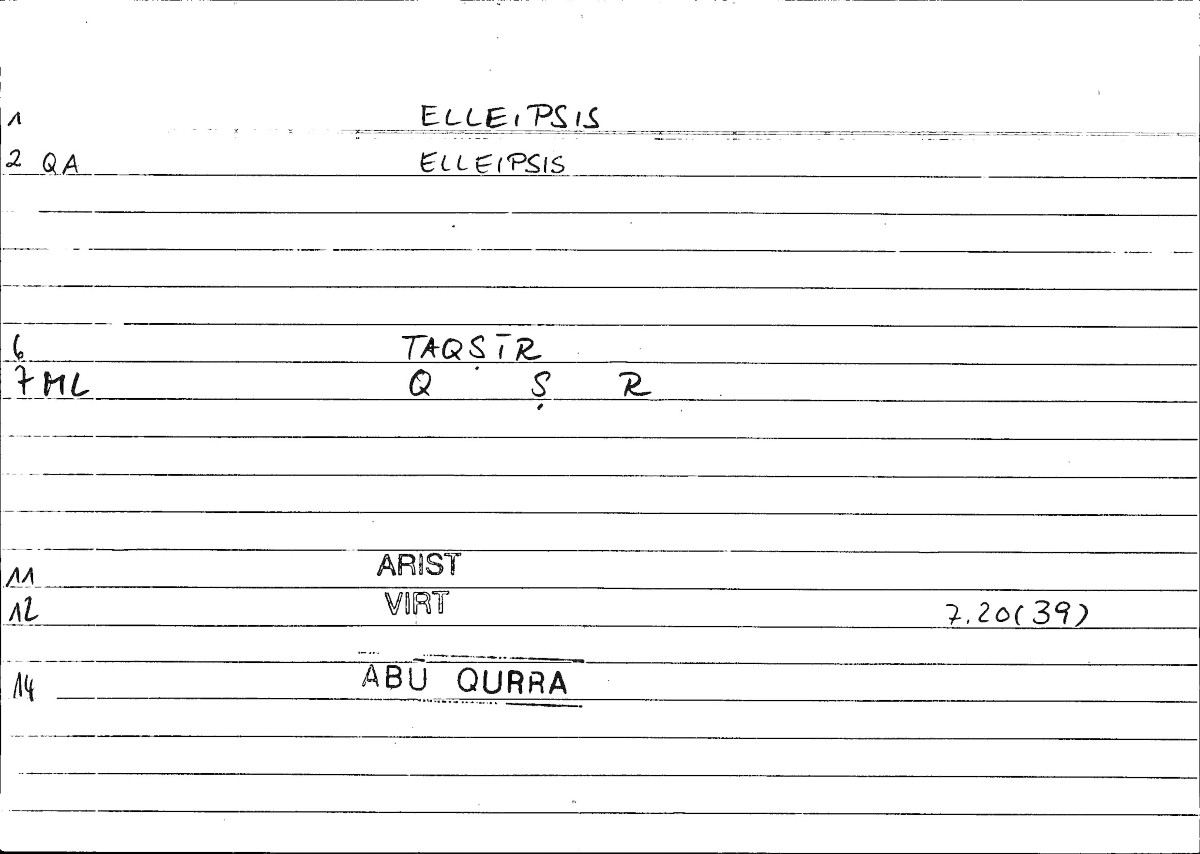 1 ELLEIPSIS
2 QA ELLEIPSIS
6 TAQṢĪR
7 ML Q Ṣ R
11 ARIST
12 VIRT 7.20(39)
14 ABŪ QURRA